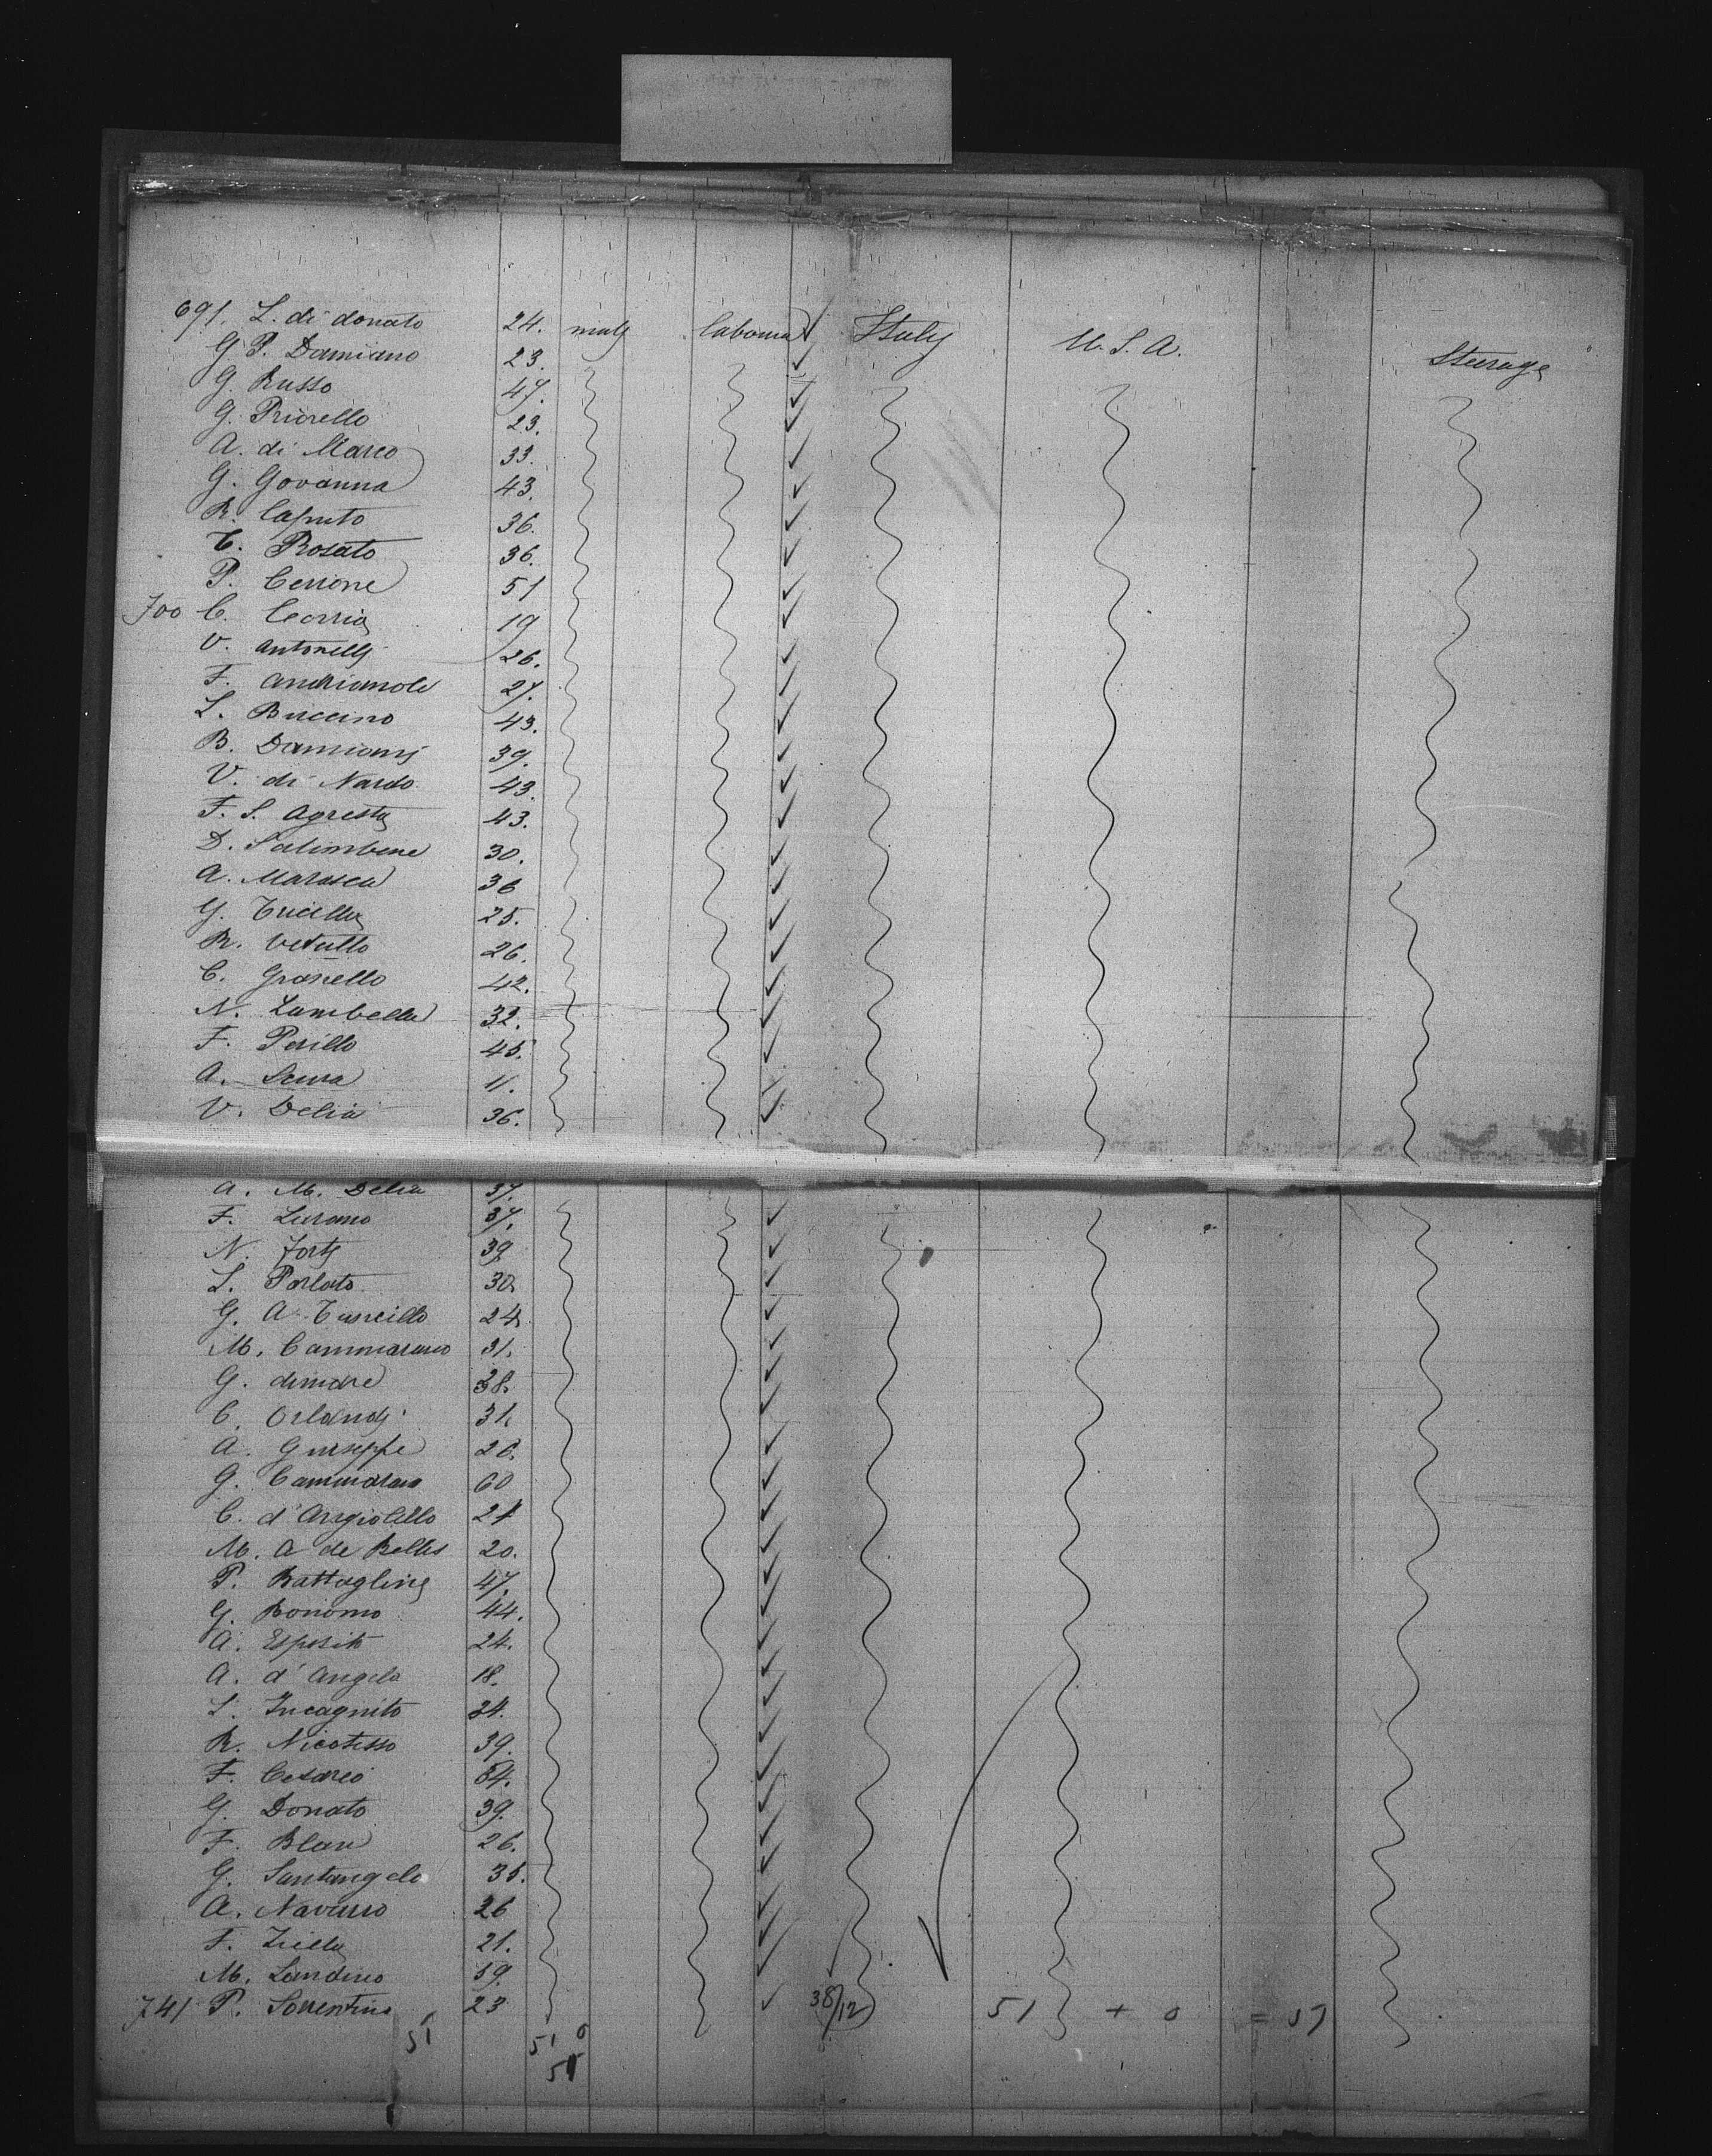 691. L. di donato 24. male labourer Italy U.S.A. Steerage
G. P. Damiano 23.
G. Russo 47.
G. Priorello 23.
A. di Marco 33.
G. Govanna 43.
R. Caputo 36.
C. Rosato 36.
P. Cerrone 51
700 C. 19
V. Antonelli 26.
F. Andrianole 27.
L. Buccino 43.
B. Damiani 39.
V. di Nardo 43.
F. S. Agresta 43.
D. Salimbene 30.
A. Marasca 36
G. 25.
R. Vetullo 26.
C. Granello 42.
N. Zambella 32.
F. Perillo 45.
A. 11.
V. Delia 36.
A. M. Delia 37.
F. 37.
N. Forte 39
L. Parlato 30.
G. A. Tancillo 24.
M. Cammarano 31.
G. 38.
C. Orlandi 31.
A. Guiseppe 26.
G. Cammarano 60
C. d'Angiolillo 21
M. A de Bellis 20.
P. Battagline 47.
G. Bonomo 44.
A. Esposito 24.
A. d'Angelo 18.
L. Incagnito 34.
R. Nicotesso 39.
F. Cesareo 54.
G. Donato 39.
F. Blau 26.
G. Santangelo 35.
A. Navarro 26
F. Zielle 21.
M. Landino 19.
741 P. Sorrentino 23 38/12 51 + 0 = 51
51 51 0
51